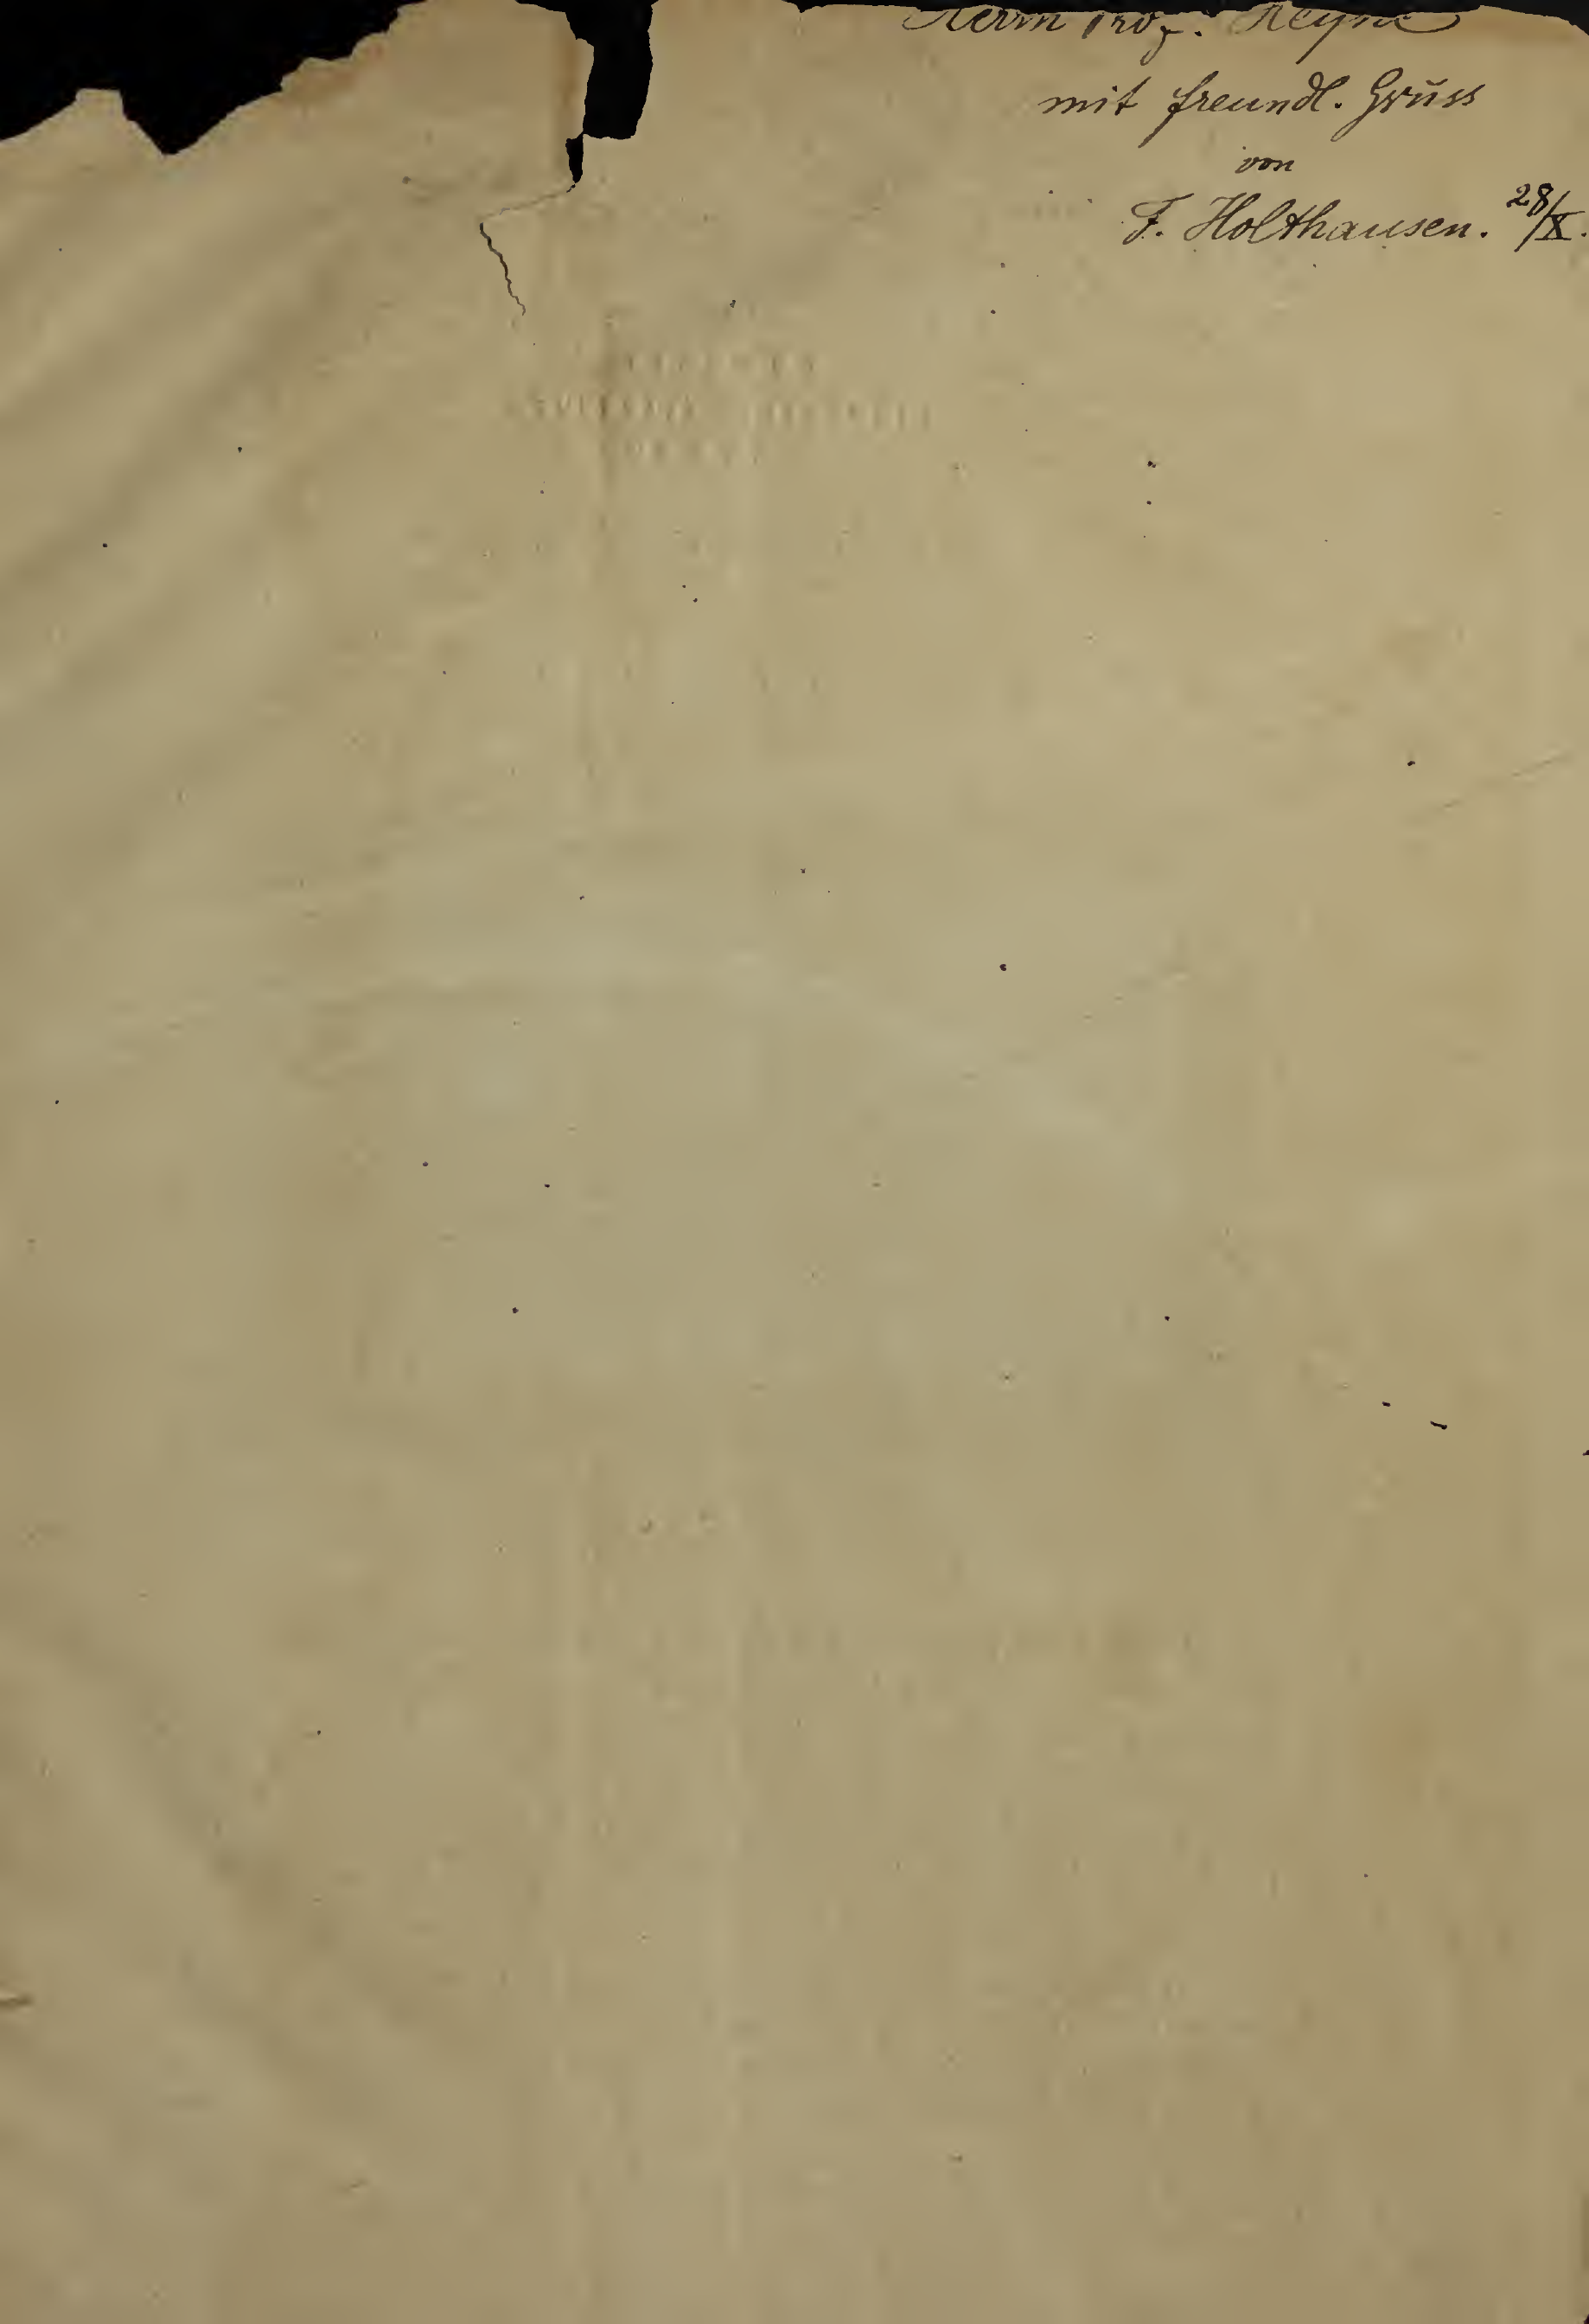 Herrn Prof. Heyne
mit freundl. Grŭss
von
F. Holthausen. 28/X.